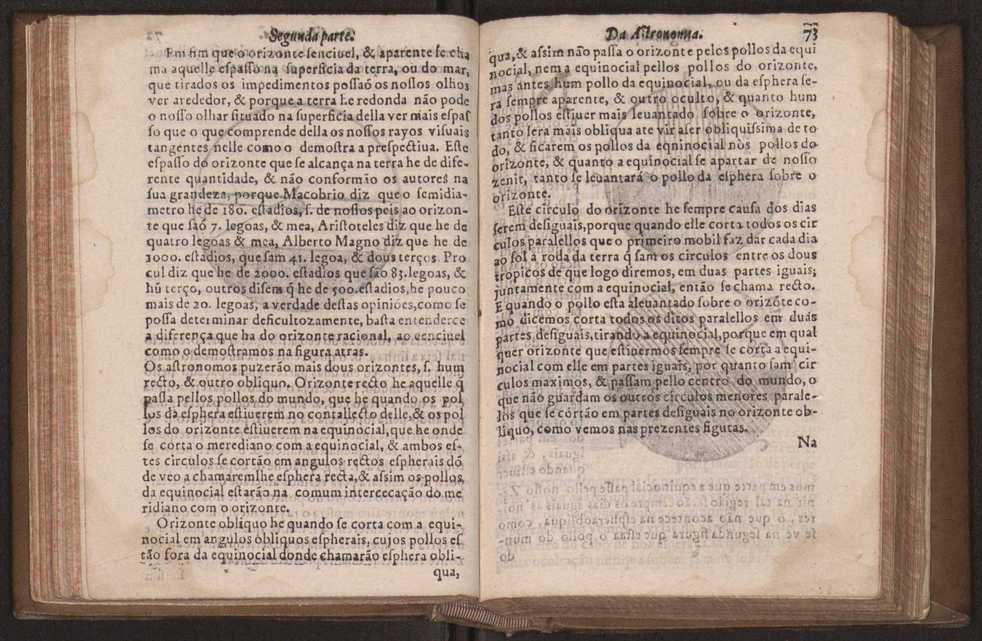 Segunda parte.
Em fim que o orizonte senciuel, & aparente se cha
ma aquelle espasso na superficia da terra, ou do mar,
que tirados os impedimentos possaõ os nossos olhos
ver arededor, & porque a terra he redonda não pode
o nosso olhar situado na superficia della ver mais espas
so que o que comprende della os nossos rayos visuais
tangentes nelle como o demostra a prespectiua. Este
espasso do orizonte que se alcança na terra he de dife-
rente quantidade, & não conformão os autores na
sua grandeza, porque Macobrio diz que o semidia-
metro he de 180. estadios, s. de nossos peis ao orizon-
te que saõ 7. legoas, & mea, Aristoteles diz que he de
quatro legoas & mea, Alberto Magno diz que he de
1000. estadios, que sam 41. legoa, & dous terços. Pro
cul diz que he de 2000. estadios que saõ 83. legoas, &
hũ terço, outros disem q̃ he de 500. estadios, he pouco
mais de 20. legoas, a verdade destas opiniões, como se
possa determinar deficultozamente, basta entenderce
a diferença que ha do orizonte racional, ao cenciuel
como o demostramos na figura atras.
Os astronomos puzerão mais dous orizontes, s. hum
recto, & outro obliquo. Orizonte recto he aquelle q̃
passa pellos pollos do mundo, que he quando os pol
los da esphera estiuerem no contallecto delle, & os pol
los do orizonte estiuerem na equinocial, que he onde
se corta o merediano com a equinocial, & ambos es-
tes circulos se cortão em angulos rectos espherais dõ
de veo a chamaremlhe esphera recta, & assim os pollos
da equinocial estarão na comum intercecação do me
ridiano com o orizonte.
Orizonte obliquo he quando se corta com a equi-
nocial em angulos obliquos espherais, cujos pollos es
tão fora da equinocial donde chamarão esphera obli-
qua,
Da Astronomia. 73
qua, & assim não passa o orizonte pelos pollos da equi
nocial, nem a equinocial pellos pollos do orizonte,
mas antes hum pollo da equinocial, ou da esphera se-
ra sempre aparente, & outro oculto, & quanto hum
dos pollos estiuer mais leuantado sobre o orizonte,
tanto sera mais obliqua ate vir a ser obliquissima de to
do, & ficarem os pollos da eqninocial nos pollos do
orizonte, & quanto a equinocial se apartar de nosso
zenit, tanto se leuantará o pollo da esphera sobre o
orizonte.
Este circulo do orizonte he sempre causa dos dias
serem desiguais, porque quando elle corta todos os cir
culos paralellos que o primeiro mobil faz dar cada dia
ao sol à roda da terra q̃ sam os circulos entre os dous
tropicos de que logo diremos, em duas partes iguais;
juntamente com a equinocial, então se chama recto.
E quando o pollo esta aleuantado sobre o orizõte co-
mo dicemos corta todos os ditos paralellos em duas
partes desiguais, tirando a equinocial, porque em qual
quer orizonte que estiuermos sempre se corta a equi-
nocial com elle em partes iguais, por quanto sam cir
culos maximos, & passam pello centro do mundo, o
que não guardam os outros circulos menores parale-
los que se córtão em partes desiguais no orizonte ob-
liquo, como vemos nas prezentes figutas.
Na